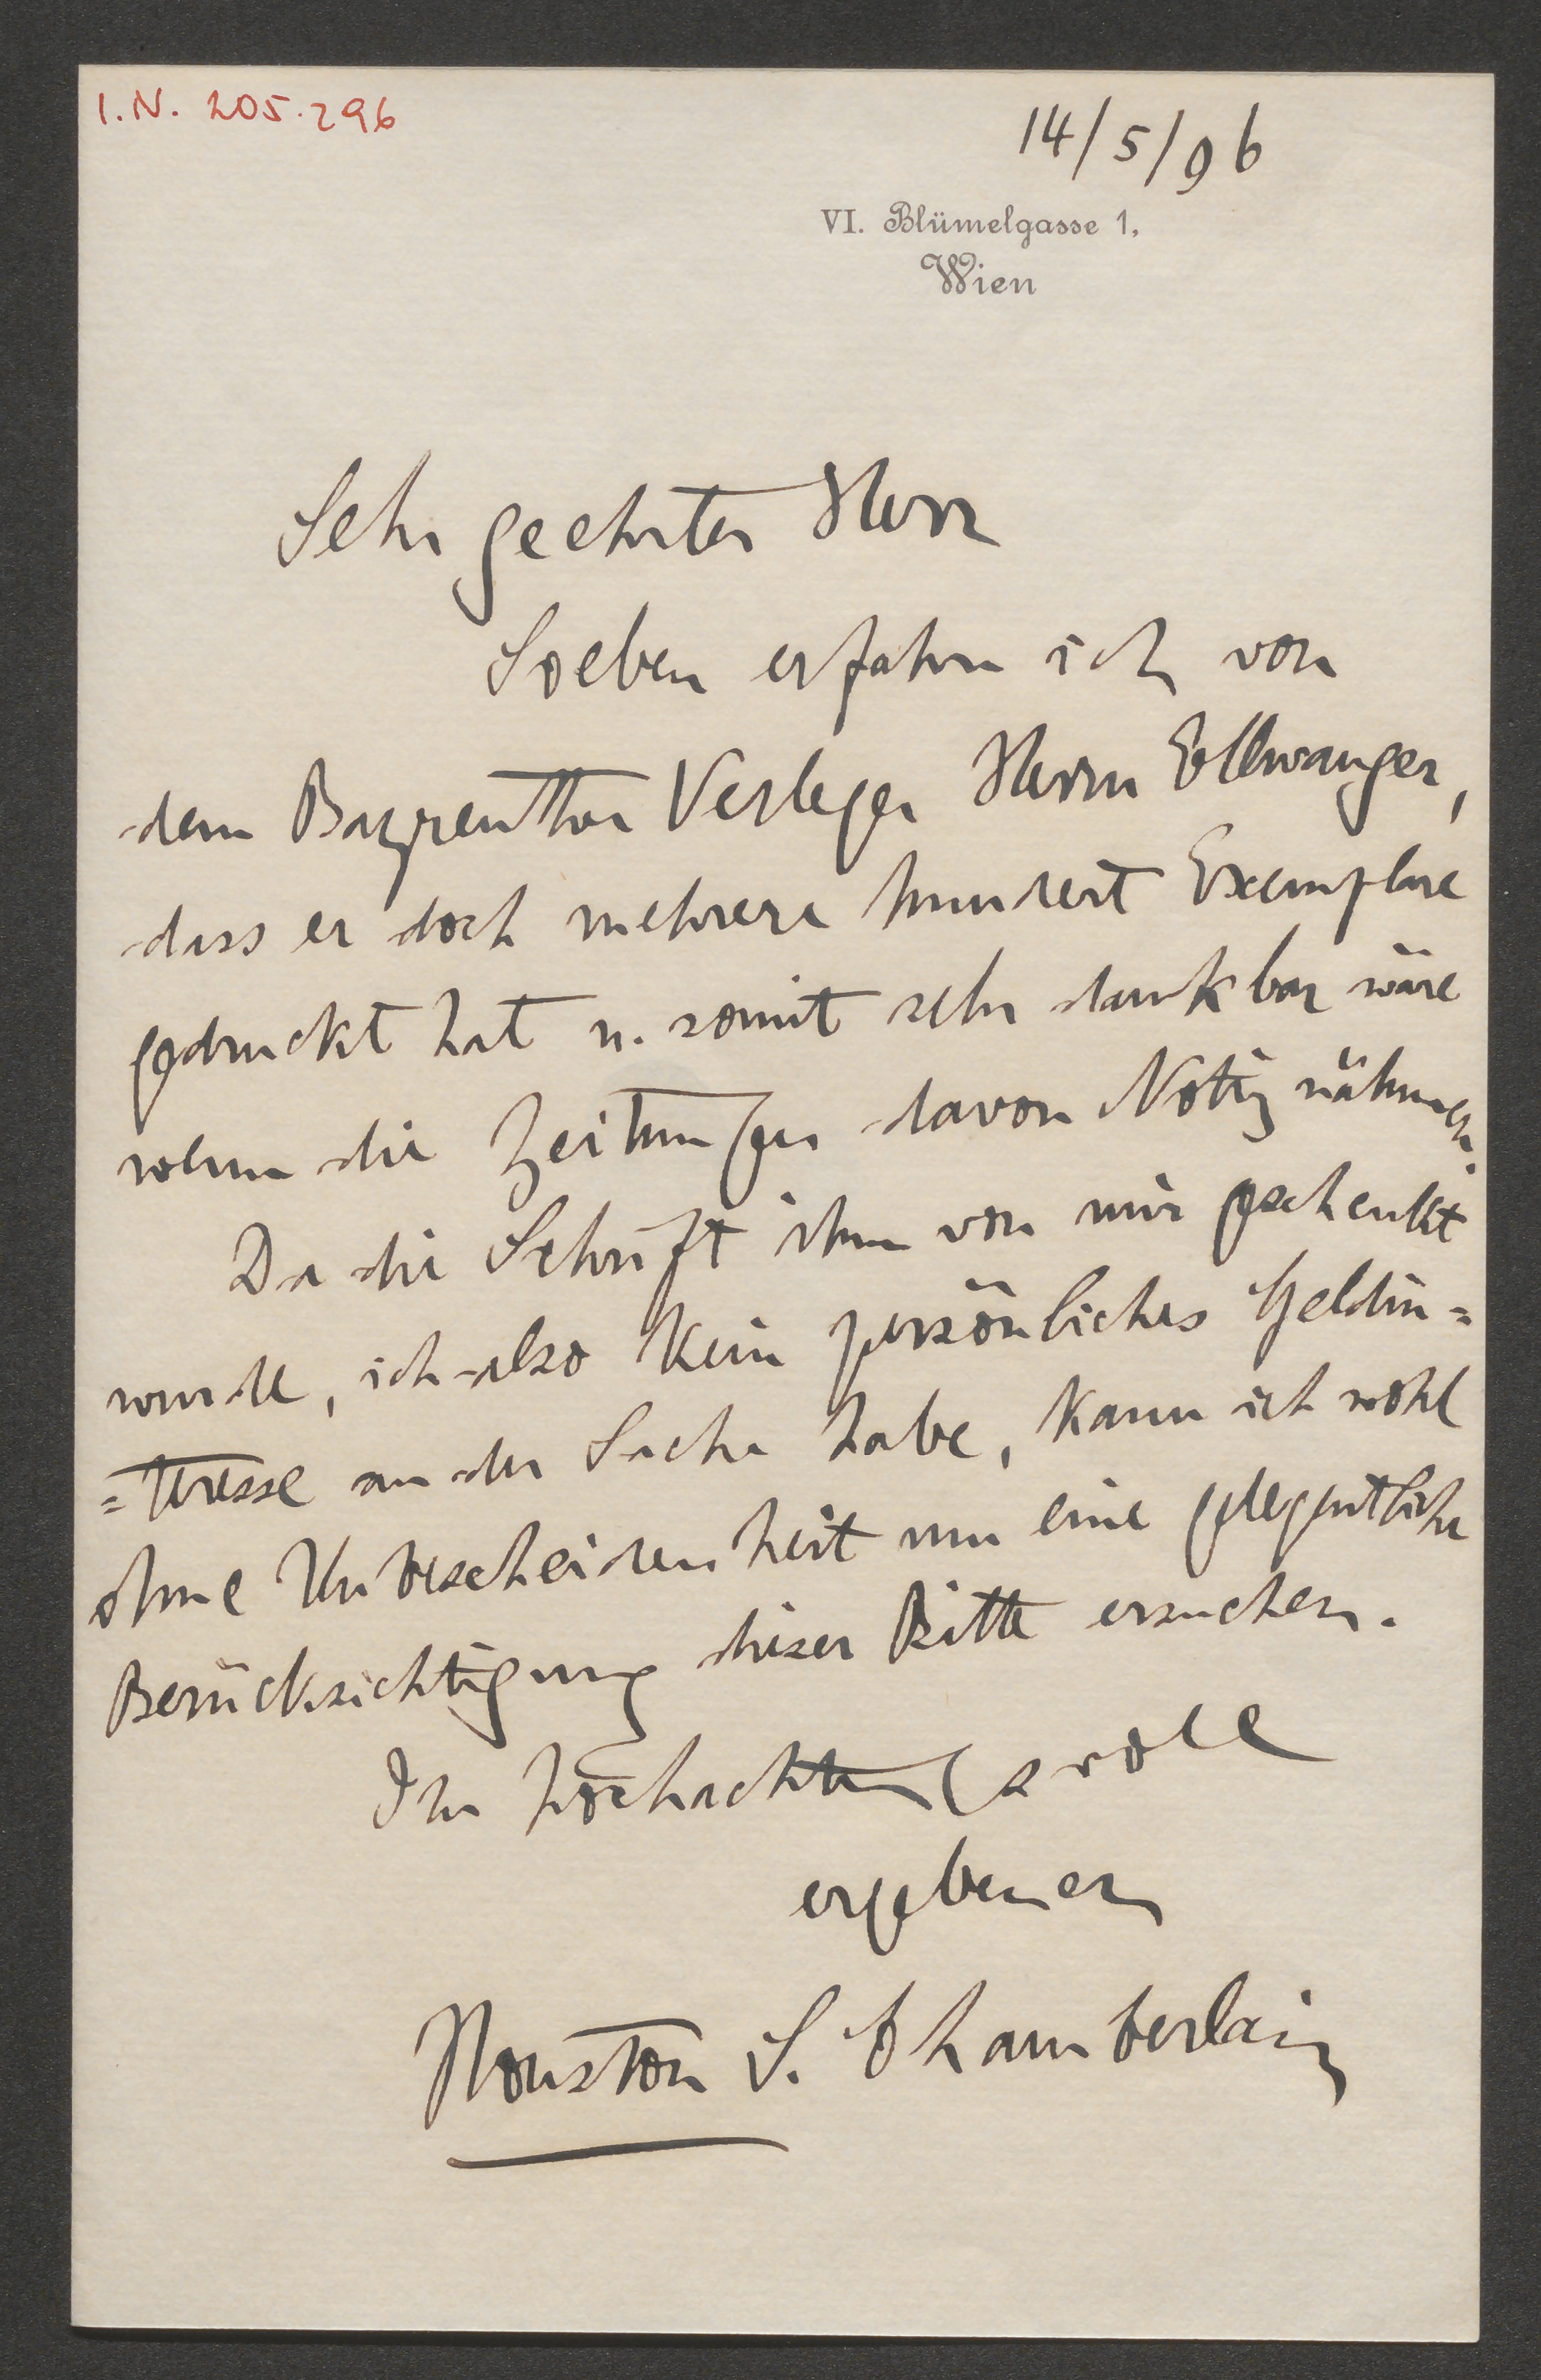 I.N. 205.296
14/5/96
VI. Blümelgasse 1,
Wien
Sehr geehrter Herr
Soeben erfahre ich von
dem Bayreuther Verleger Herrn Ellwanger,
dass er doch mehrere hundert Exemplare
gedruckt hat u. somit sehr dankbar wäre
wenn die Zeitungen davon Notiz nähmen.
Da die Schrift ihm von mir geschenkt
wurde, ich also kein persönliches Geldin=
=teresse an der Sache habe, kann ich wohl
ohne Unbescheidenheit um eine gelegentliche
Berücksichtigung dieser Bitte ersuchen.
Ihr hochachtungsvoll
ergebener
Houston S. Chamberlain